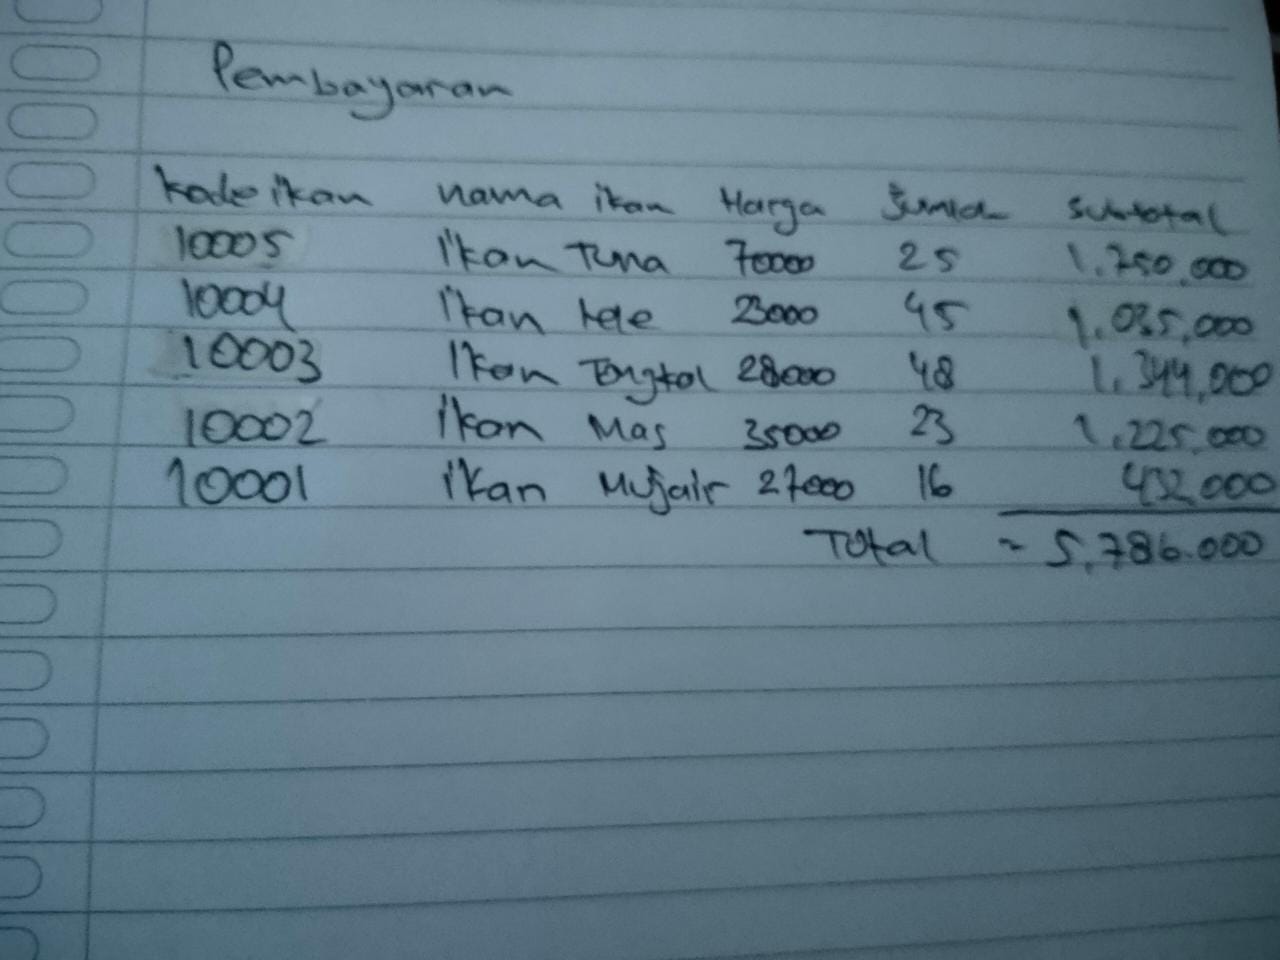 Pembayaran
kode ikan nama ikan Harga Jumlah Subtotal
10005 Ikan Tuna 70000 25 1.750.000
10004 Ikan lele 23000 45 1.035.000
10003 Ikan Tongkol 28000 48 1.344.000
10002 Ikan Mas 35000 23 1.225.000
10001 ikan Mujair 27000 16 432.000
Total = 5.786.000